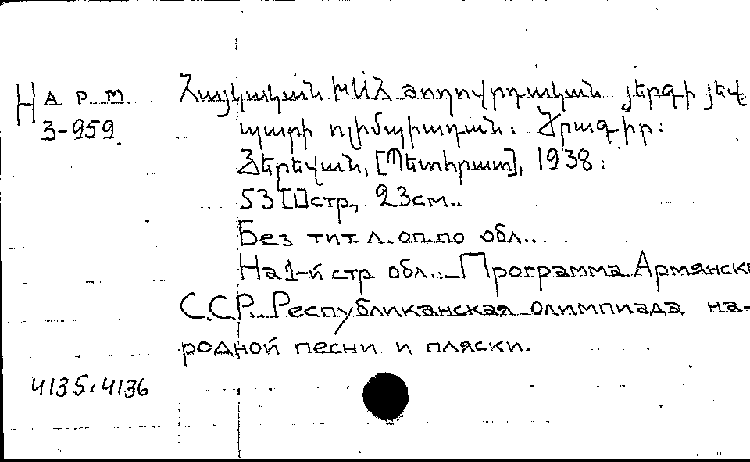 Н арт
З-959
Հայկական ԽՍՀ ժողովրդական յերգի յեվ
պարի ոլիմպիադան: Ծրագիր:
Յերեվան, [Պետհրատ], 1938:
53 [1] стр., 23см..
Без тит. л. оп. по обл..
На 1-й стр обл.: Программа. Армянск
С.С.Р. Республиканская олимпиада на-
родной песни и пляски.
4135, 4136